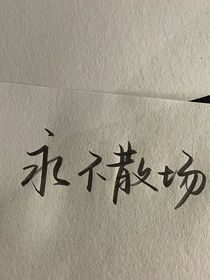 永不散场